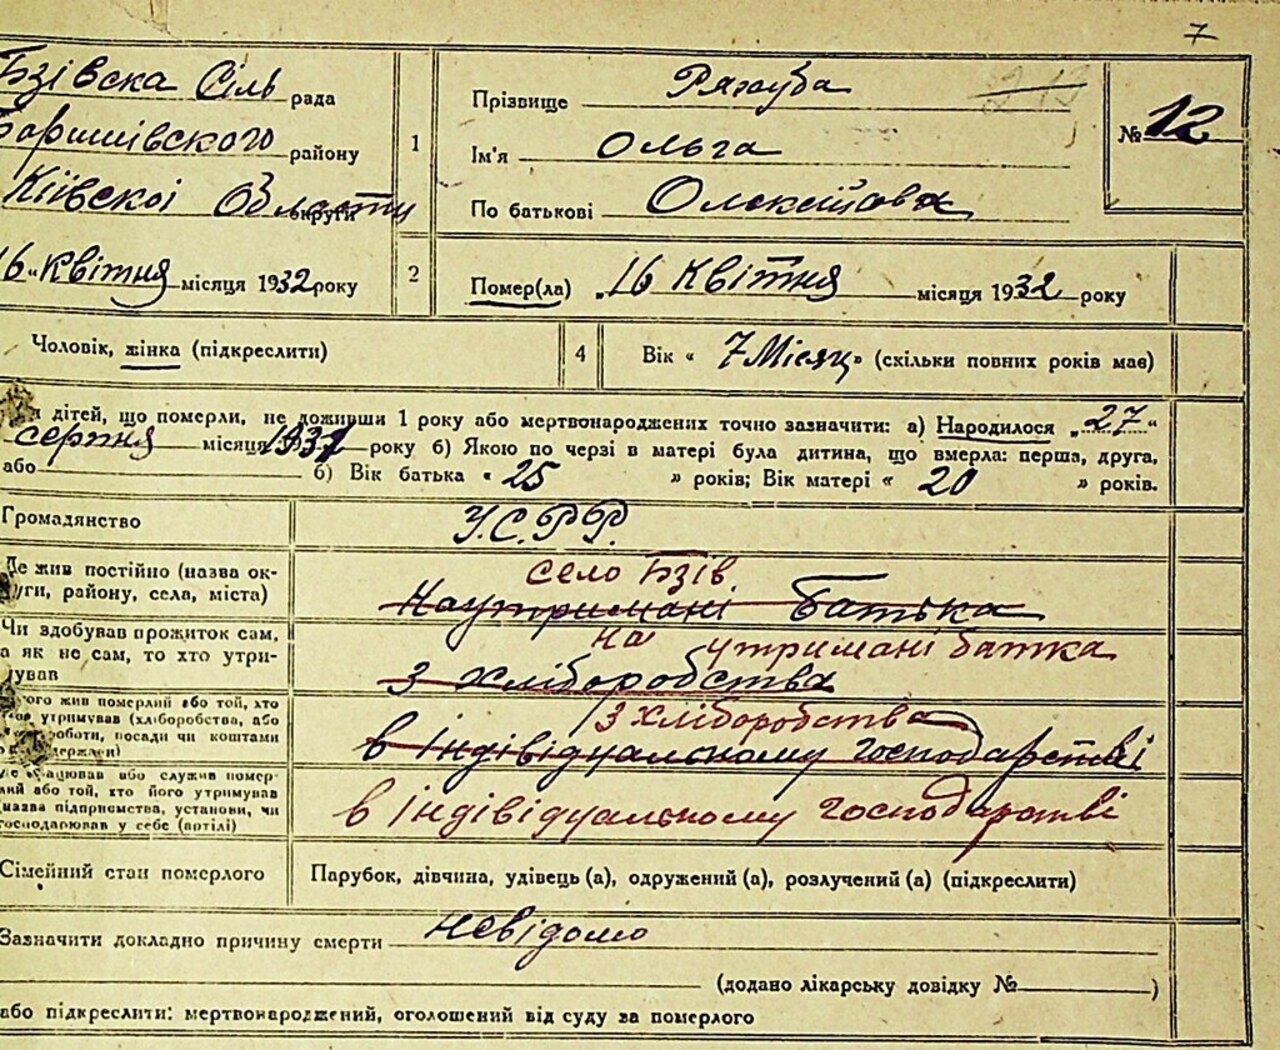 7
Бзівска Сіль рада
Баришівского району
Київскої Области округи
16 „ Квітня місяця 1932 року
1
Прізвище
Ім'я Ольга
По батькові Олексіівна
№ 12
2
Помер(ла) „16 Квітня місяця 1932 року
Чоловік, жінка (підкреслити)
4
Вік « 7 Місяц» (скільки повних років має)
дітей, що померли, не доживши 1 року або мертвонароджених точно зазначити: а) Народилося „27“
серпня місяця 1931 року б) Якою по черзі в матері була дитина, що вмерла: перша, друга,
або б) Вік батька « 25 » років; Вік матері « 20 » років.
Громадянство У.С.Р.Р.
Де жив постійно (назва ок-
руги, району, села, міста)
село Бзів
На утримані Батька
Чи здобував прожиток сам,
а як не сам, то хто утри-
мував
на утримані батка
з хліборобства
чого жив померлий або той, хто
його утримував (хліборобства, або
роботи, посади чи коштами
держави)
з хліборобства
в індівідуальському господарстві
Де працював або служив помер-
лий або той, хто його утримував
(назва підприємства, установи, чи
господарював у себе (артілі)
в індівідуальському господарстві
Сімейний стан померлого
Парубок, дівчина, удівець (а), одружений (а), розлучений (а) (підкреслити)
Зазначити докладно причину смерти невідомо
(додано лікарську довідку № )
або підкреслити: мертвонароджений, оголошений від суду за померлого